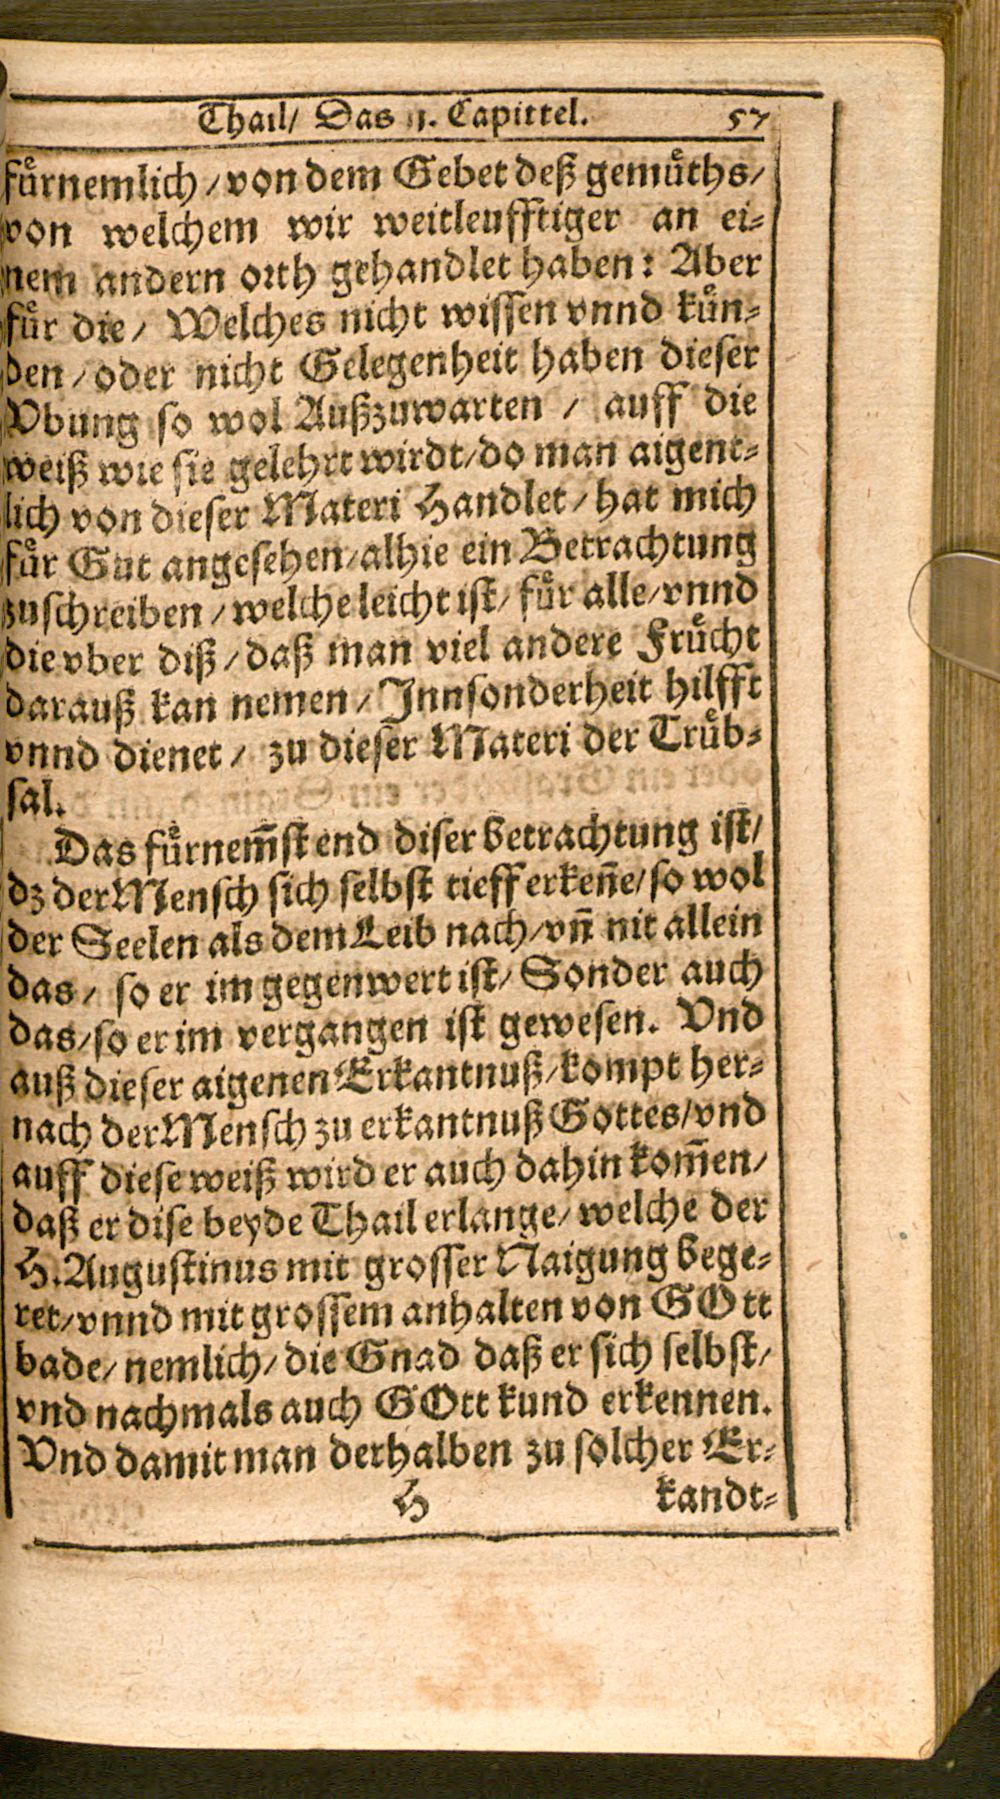 Thail/ Das 1. Capittel. 57
fuͤrnemlich/von dem Gebet deß gemuͤths/
von welchem wir weitleufftiger an ei-
nem andern orth gehandlet haben: Aber
fuͤr die/ Welches nicht wissen vnnd kuͤn-
den/oder nicht Gelegenheit haben dieser
Vbung so wol Außzuwarten / auff die
weiß wie sie gelehrt wirdt/do man aigent-
lich von dieser Materi Handlet/hat mich
fuͤr Gut angesehen/alhie ein Betrachtung
zuschreiben/welche leicht ist/fuͤr alle/vnnd
die vber diß/daß man viel andere Fruͤcht
darauß kan nemen/Innsonderheit hilfft
vnnd dienet/ zu dieser Materi der Truͤb-
sal.
Das fuͤrnem̄st end diser betrachtung ist/
dz der Mensch sich selbst tieff erkeñe/so wol
der Seelen als dem Leib nach/vñ nit allein
das/ so er im gegenwert ist/Sonder auch
das/so er im vergangen ist gewesen. Vnd
auß dieser aigenen Erkantnuß/kompt her-
nach der Mensch zu erkantnuß Gottes/vnd
auff diese weiß wird er auch dahin kom̄en/
daß er dise beyde Thail erlange/welche der
H. Augustinus mit grosser Naigung bege-
ret/vnnd mit grossem anhalten von GOtt
bade/nemlich/die Gnad daß er sich selbst/
vnd nachmals auch GOtt kund erkennen.
Vnd damit man derhalben zu solcher Er-
H kandt-